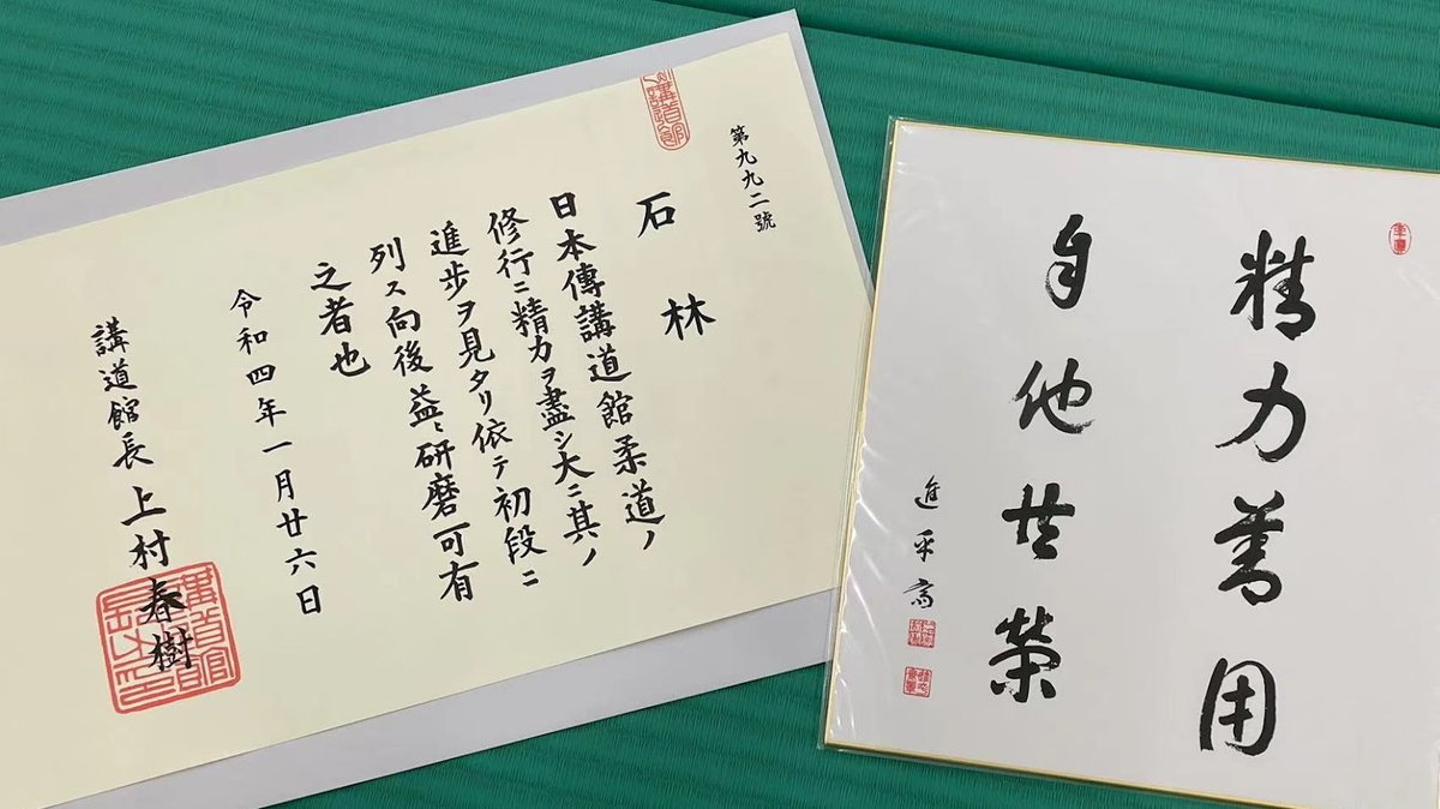 第九九二號
石林
日本傳講道館柔道ノ
修行ニ精力ヲ盡シ大ニ其ノ
進歩ヲ見タリ依テ初段ニ
列ス向後益〻研磨可有
之者也
令和四年一月廿六日
講道館長 上村春樹
講道館長之印
精力善用
自他共榮
進乎斎